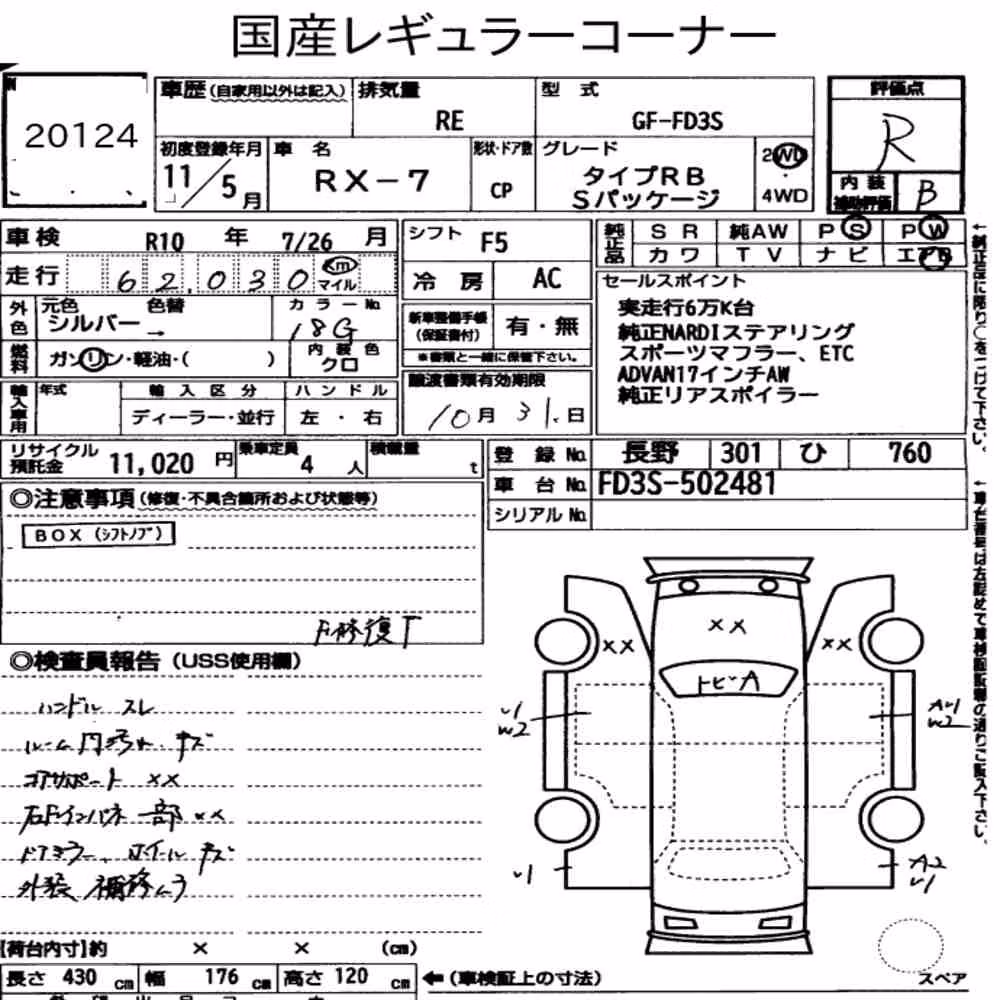 国産レギュラーコーナー
20124
車歴 (自家用以外は記入) 排気量 RE
型式 GF-FD3S
評価点 R
内装補助評価 B
初度登録年月 11/5月
車名 RX-7
形状・ドア数 CP
グレード タイプRB Sパッケージ
2WD・4WD
車検 R10年 7/26月
シフト F5
純正品 SR 純AW PS PW
カワ TV ナビ エアB
走行 62,030 km マイル
冷房 AC
セールスポイント
実走行6万K台
純正NARDIステアリング
スポーツマフラー、ETC
ADVAN17インチAW
純正リアスポイラー
外色 元色 シルバー → 色替
カラーNo. 18G
新車整備手帳(保証書付) 有・無
※書類と一緒に保管下さい。
燃料 ガソリン・軽油・( )
内装色 クロ
譲渡書類有効期限
10月31日
輸入車用 年式 輸入区分 ハンドル
ディーラー・並行 左・右
リサイクル預託金 11,020円
乗車定員 4人
積載量 t
登録No. 長野 301 ひ 760
車台No. FD3S-502481
シリアルNo.
◎注意事項(修復・不具合箇所および状態等)
BOX (シフトノブ)
F修復T
◎検査員報告(USS使用欄)
ハンドル スレ
ルーム内汚れ、キズ
コアサポート XX
右Fインパネ一部 XX
ドアミラー、ホイールキズ
外装 補修ムラ
XX
XX
XX
トビA
U1
W2
AU1
W2
U1
A2
U1
スペア
【荷台内寸】約 × × (cm)
長さ 430 cm 幅 176 cm 高さ 120 cm
←(車検証上の寸法)